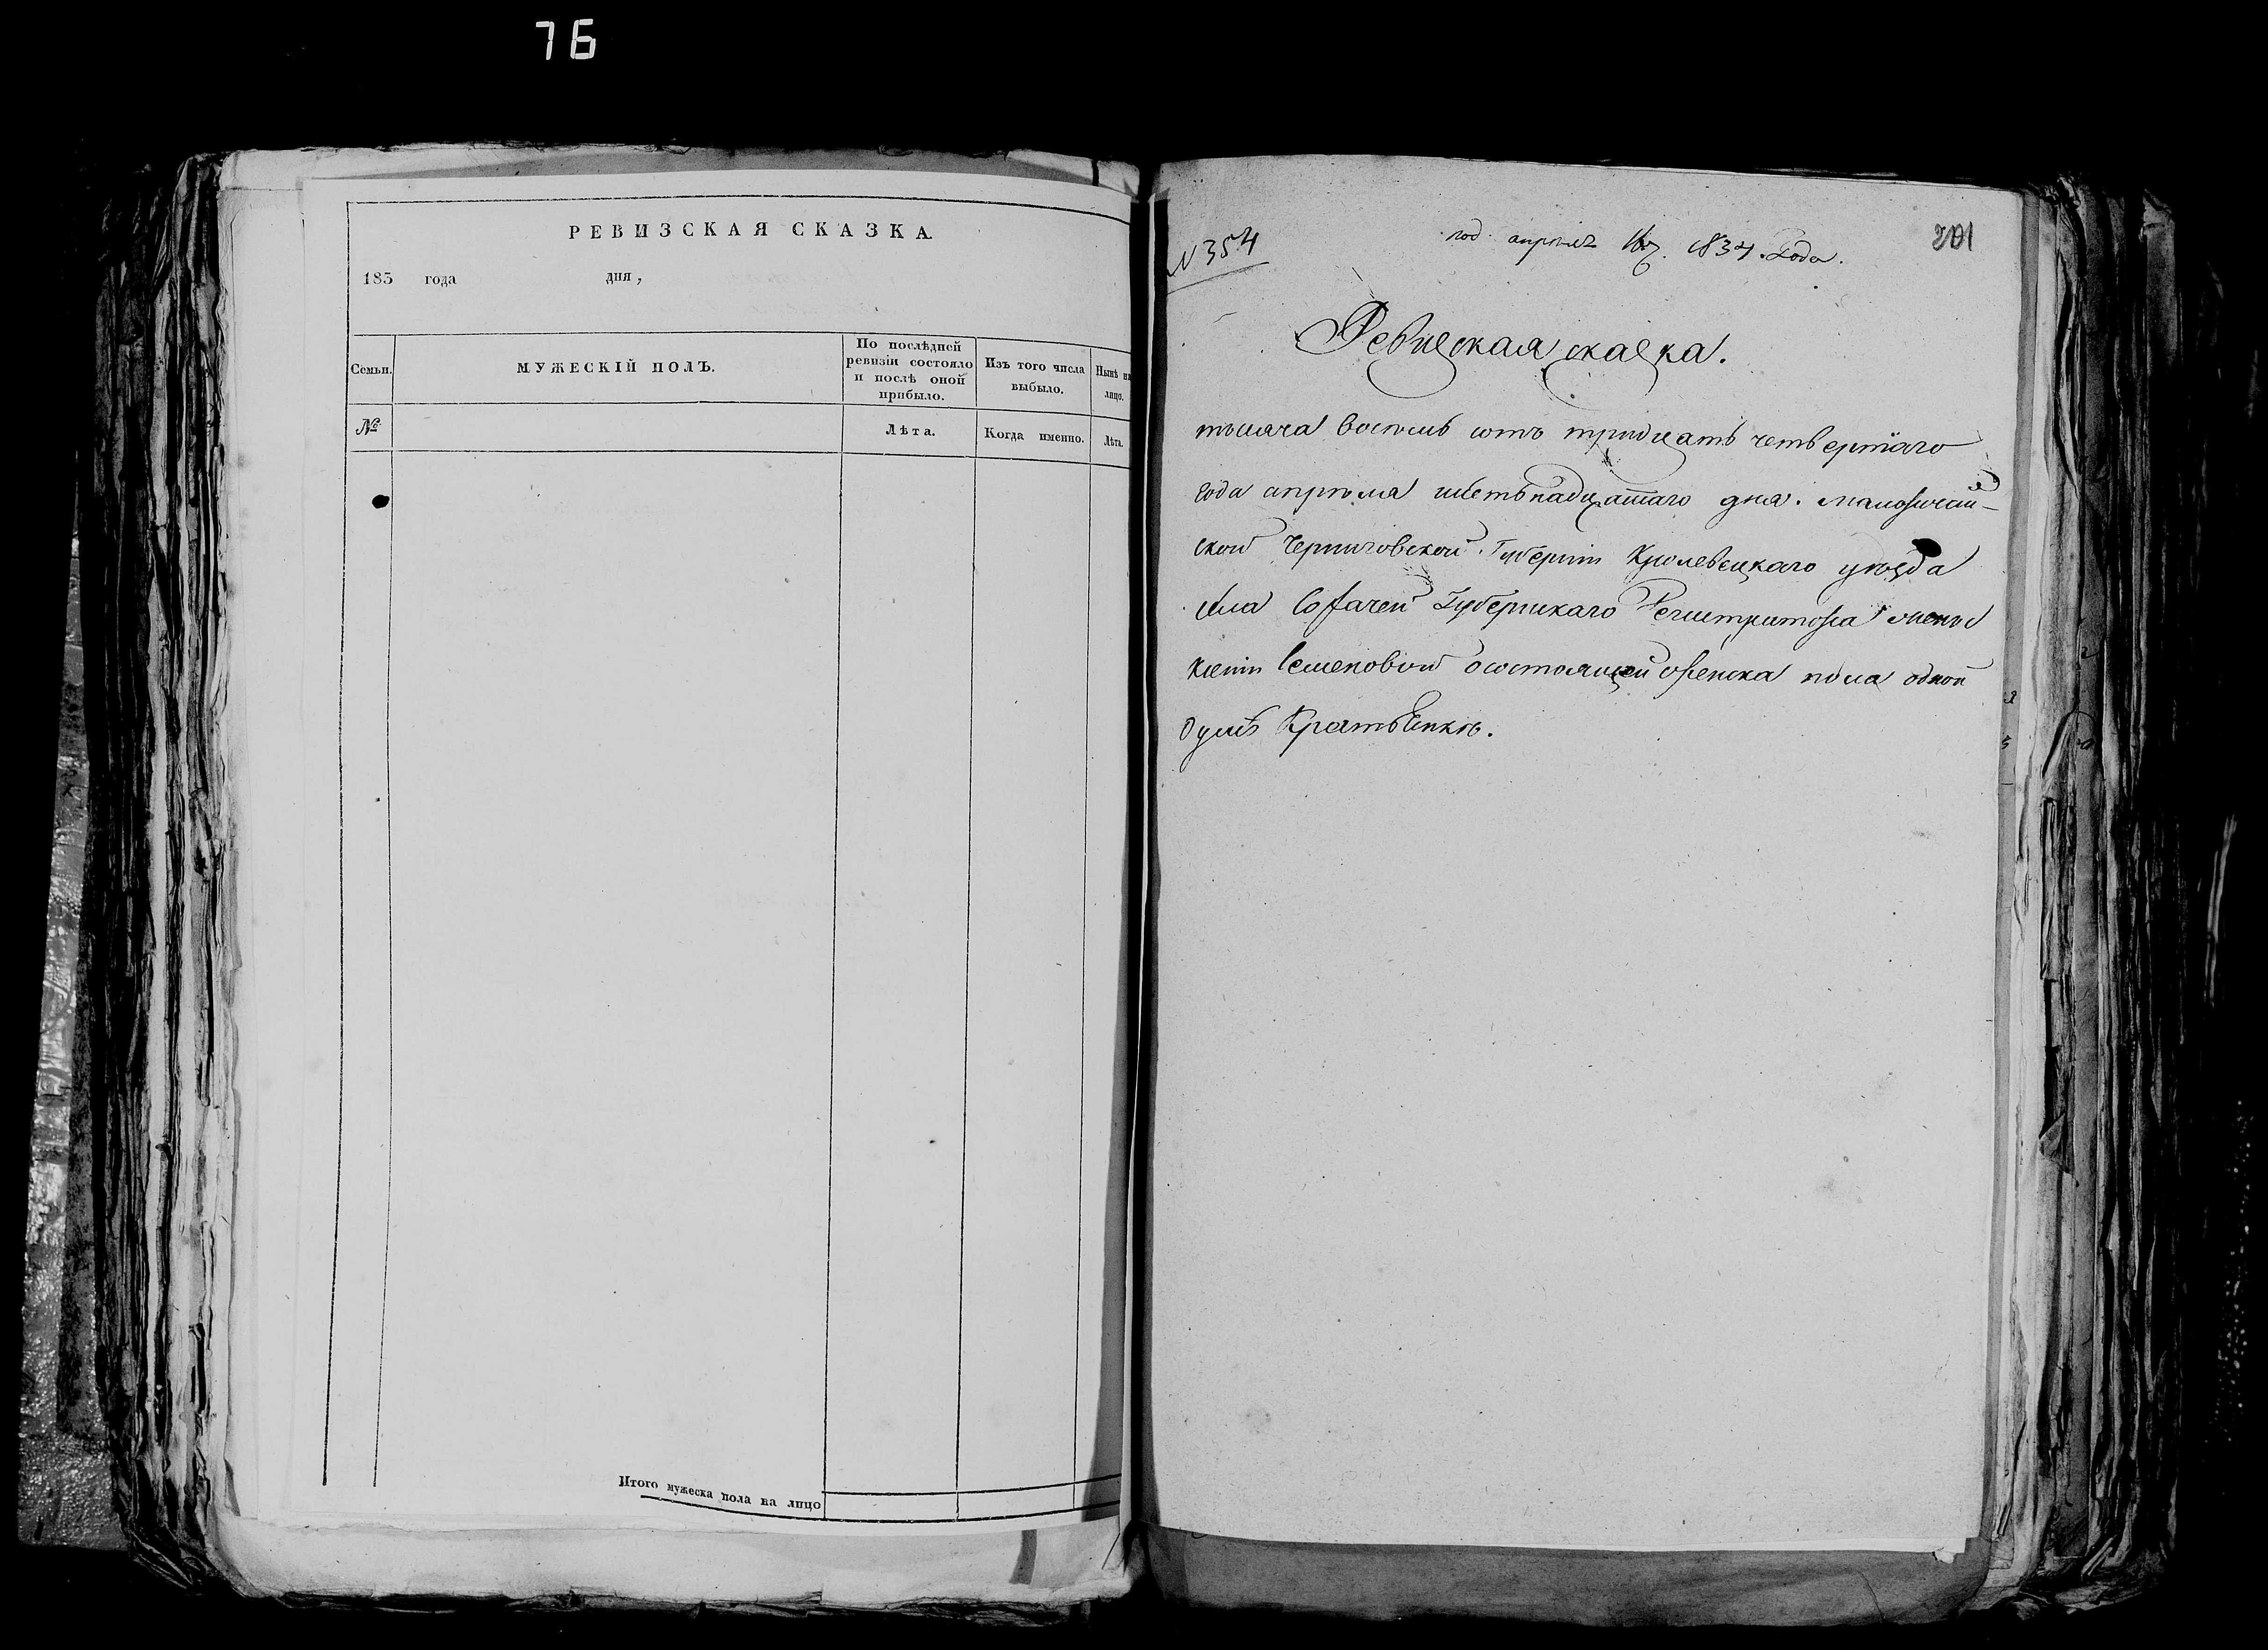 76
РЕВИЗСКАЯ СКАЗКА
183 года дня,
Семьи.
МУЖЕСКІЙ ПОЛЪ.
По послѣдней
ревизіи состояло
и послѣ оной
прибыло.
Изъ того числа
выбыло.
Нынѣ на
лицо.
№
Лѣта.
Когда именно.
Лѣта.
Итого мужеска пола на лицо
201
N 354
под. апрѣля 16. 1834. Года.
Ревизская сказка.
тысяча восемь сотъ тридцать четвертаго
года апрѣля шетьнадцатаго дня. малоросій-
ской Черниговской Губерніи Кролевецкаго уѣзда
села Собичей Губернскаго Регистратора
Семеновой о состоящей женска пола одной
душѣ